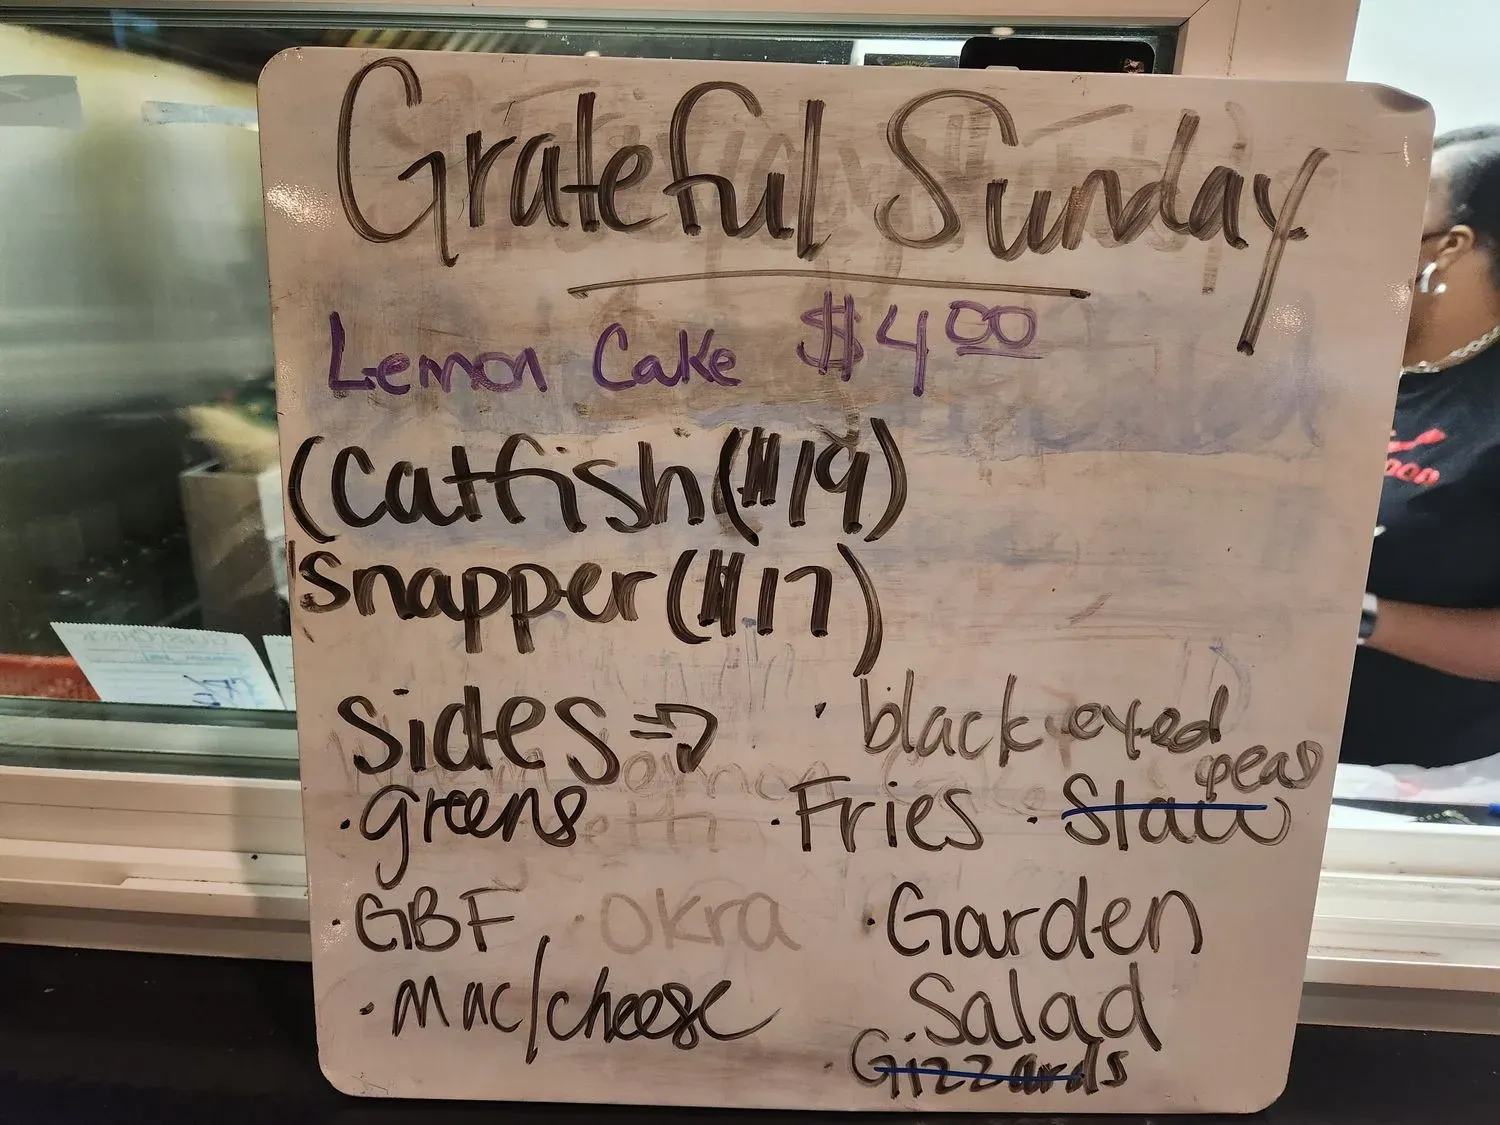 Grateful Sunday
Lemon Cake $4.00
(Catfish (#19)
Snapper (#17)
Sides ⇒
· black-eyed peas
· greens
· Fries
· Slaw
· GBF
· Okra
· Garden Salad
· Mac/cheese
· Gizzards